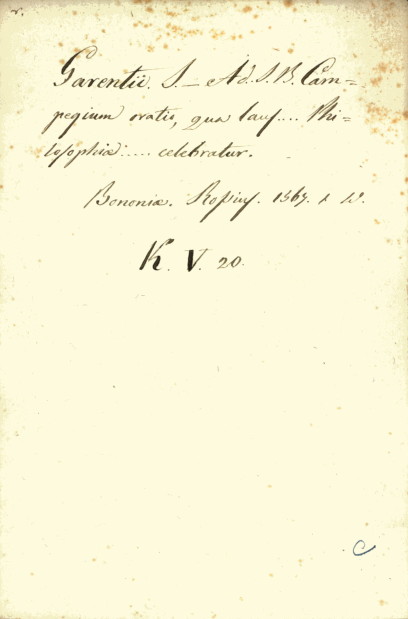 r.
Garentii. J. — Ad. J. B. Cam=
pegium oratio, qua lauf.... Phi=
losophiæ ..... celebratur.
Bononiæ. Rossius. 1567.
K. V. 20.
C